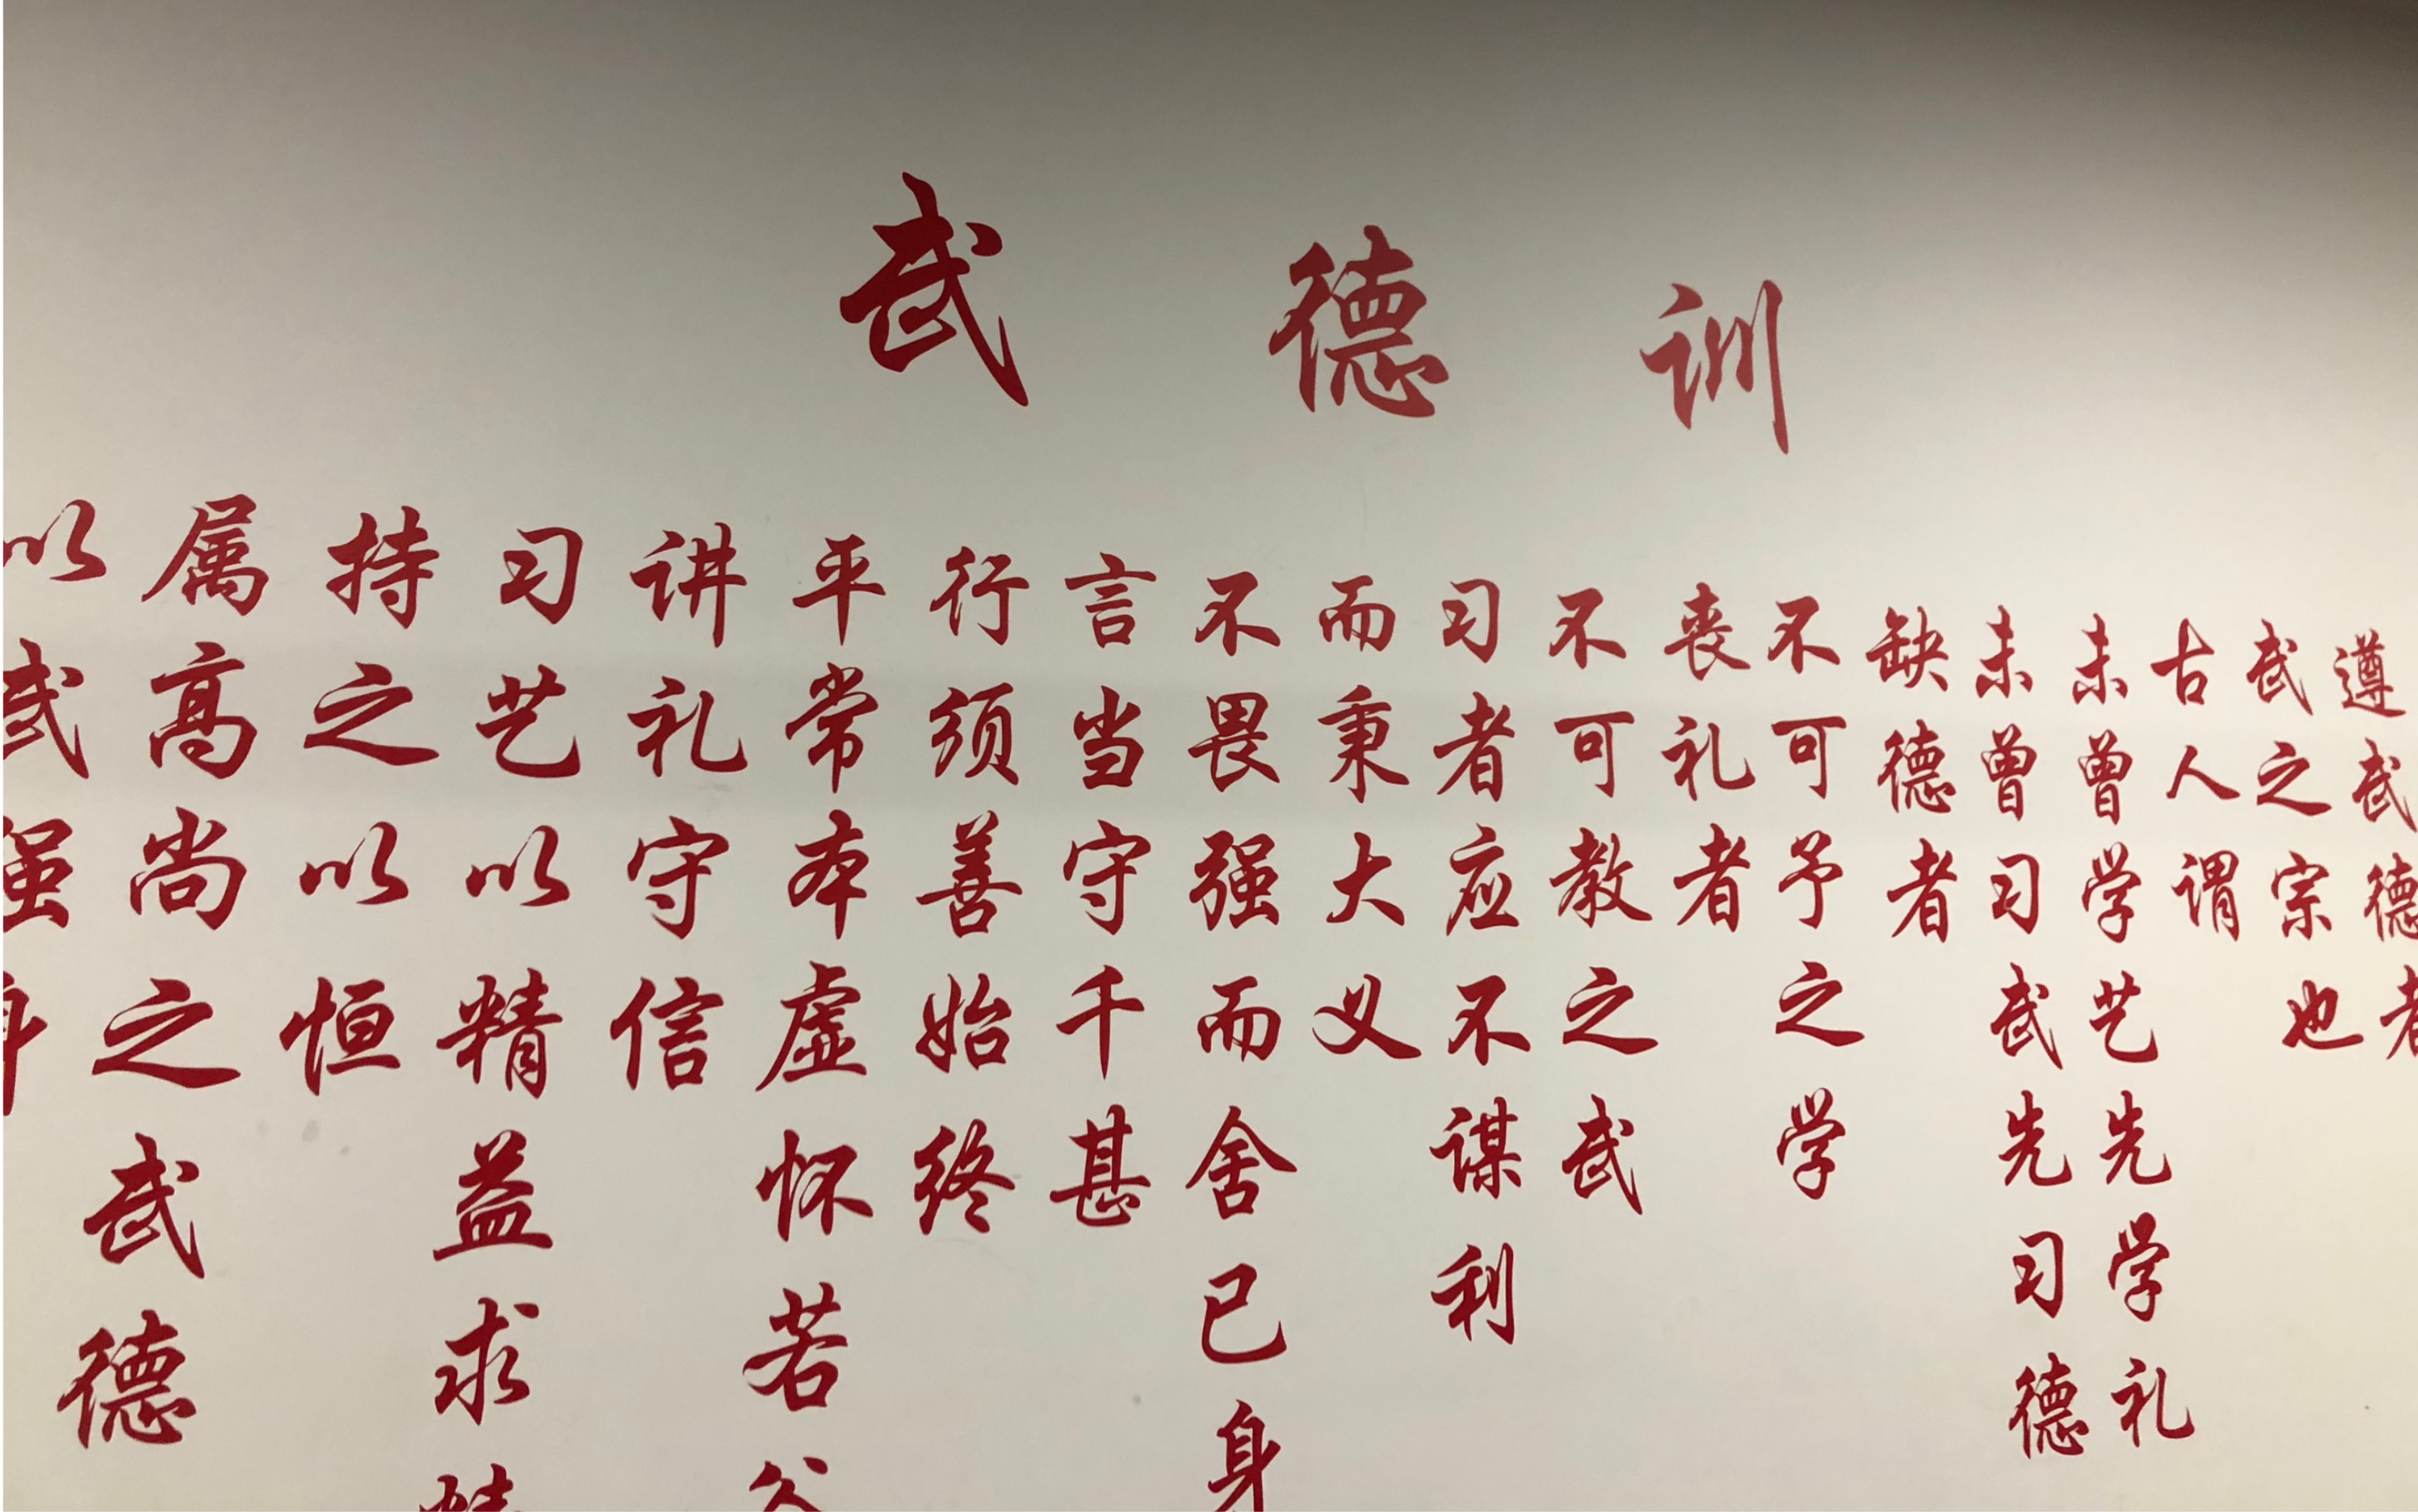 武德训
遵武德者
武之宗也
古人谓
未曾学艺先学礼
未曾习武先习德
缺德者
不可予之学
丧礼者
不可教之武
习者应不谋利
而秉大义
不畏强而舍已身
言当守千甚
行须善始终
平常本虚怀若谷
讲礼守信
习艺以精益求精
持之以恒
属高尚之武德
以武强身